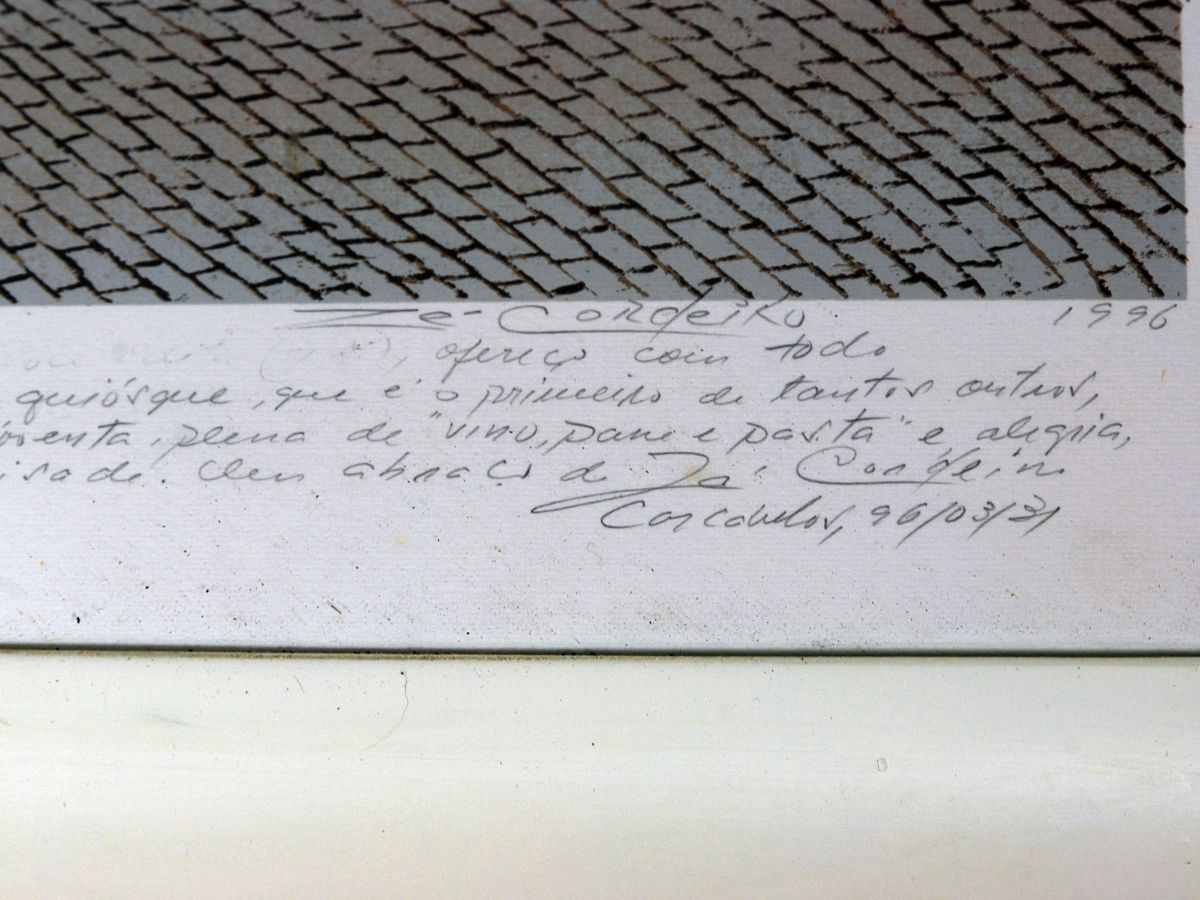 Zé Cordeiro 1996
ofereço com todo
quiósque, que é o primeiro de tantos outros,
plena de "vino, pane e pasta" e alegria,
Um abraço do Zé Cordeiro
Carcavelos, 96/03/31